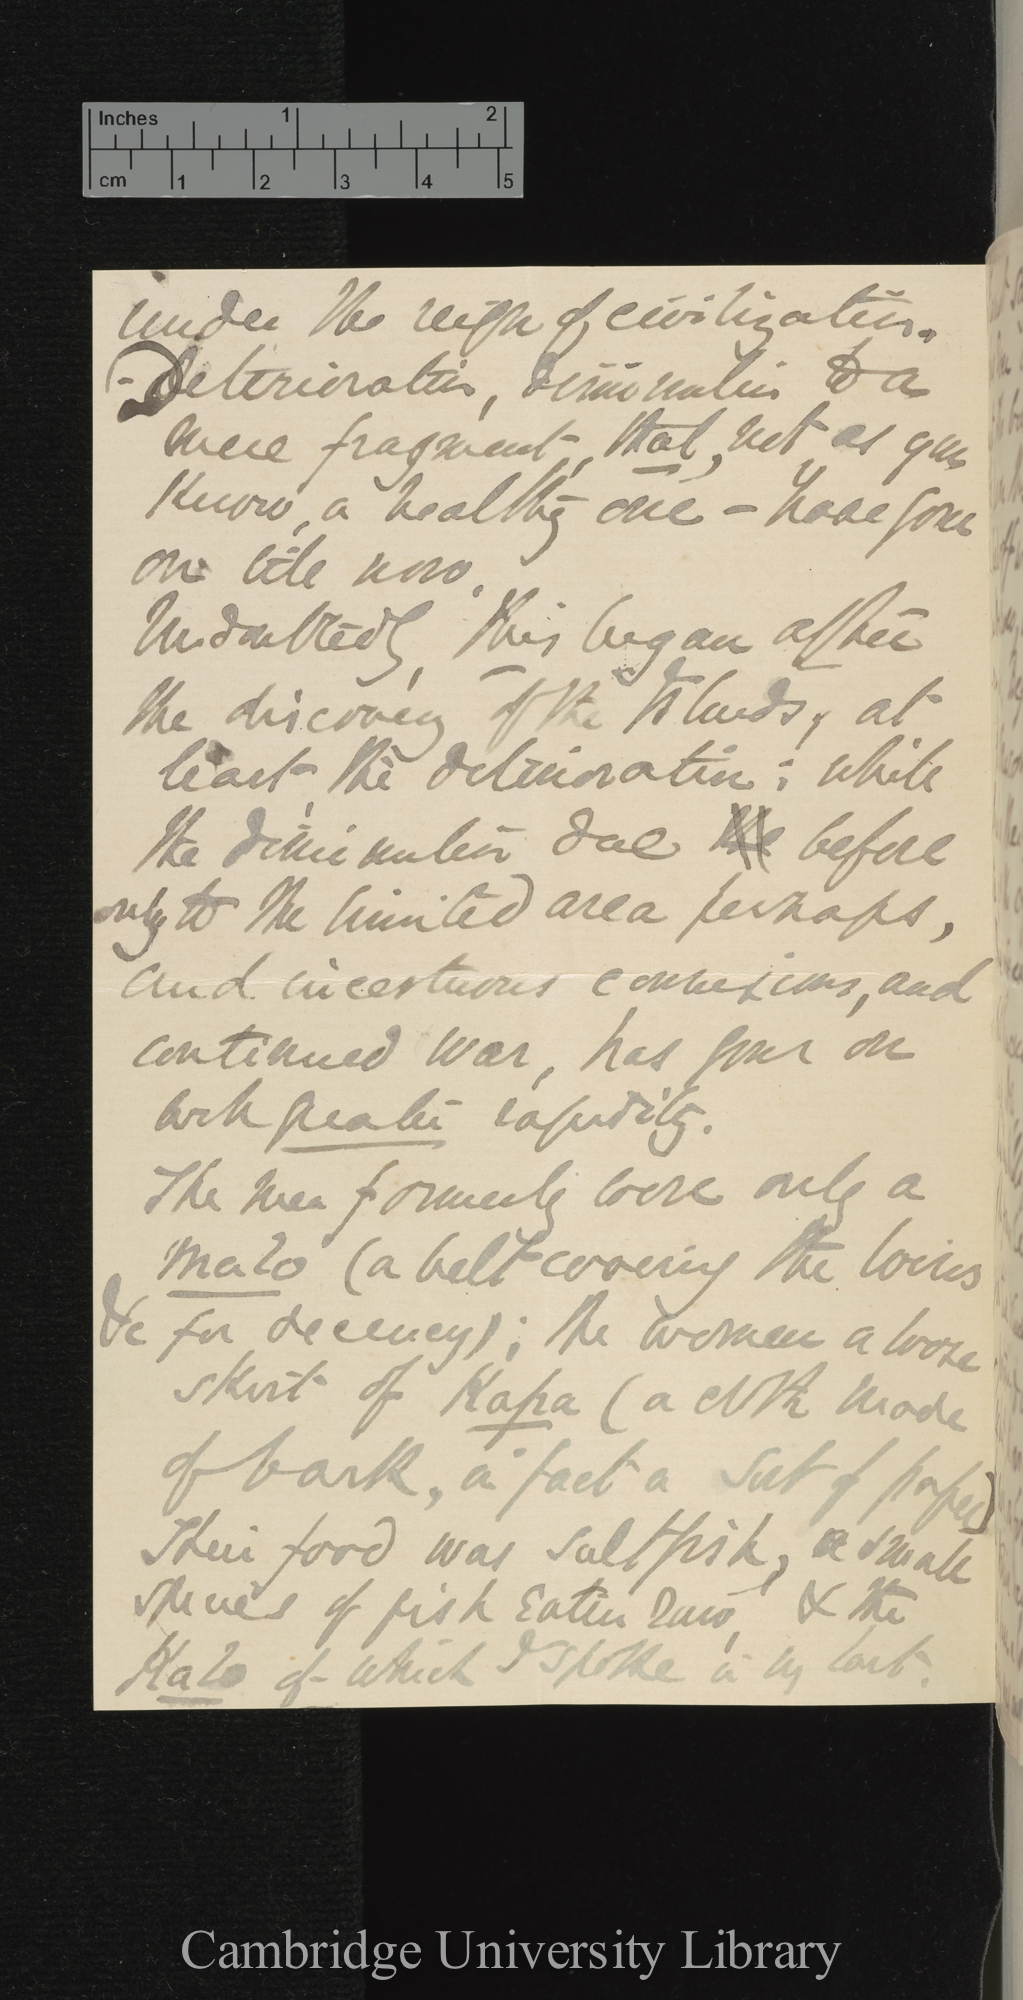 Inches 1 2
cm 1 2 3 4 5
under the reign of civilization.
- Deterioration, diminution to a
mere fragment, that, not as you
know, a healthy one - have gone
on till now.
Undoubtedly, this began after
the discovery of the Islands, at
least, the deterioration; while
the diminution due the before
only to the limited area perhaps,
and incestuous connexions, and
continued war, has gone on
with greater rapidity.
The men formerly wore only a
malo (a belt covering the loins
&c for decency); the women a loose
skirt of Kapa (a cloth made
of bark, in fact a sort of paper)
Their food was saltfish, a small
species of fish eaten raw, & the
Kalo of which I spoke in my last.
Cambridge University Library